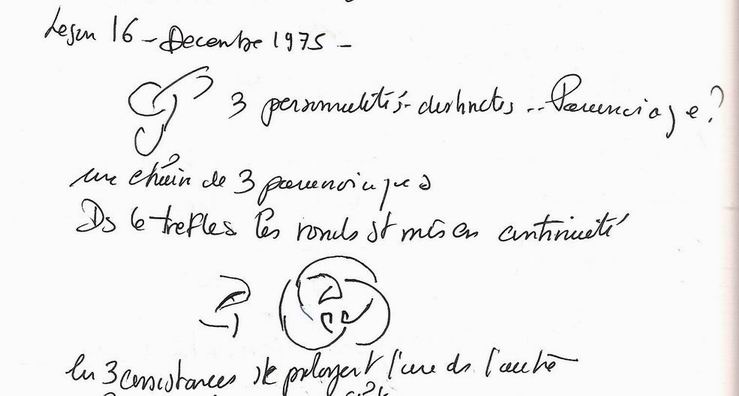 Leçon 16 - Decembre 1975 -
3 personnalités distinctes -- Paranoiaque ?
une chain de 3 paranoiaques
Ds le trefles les ronds st mis en continuité
les 3 consistances se prolongent l'une ds l'autre